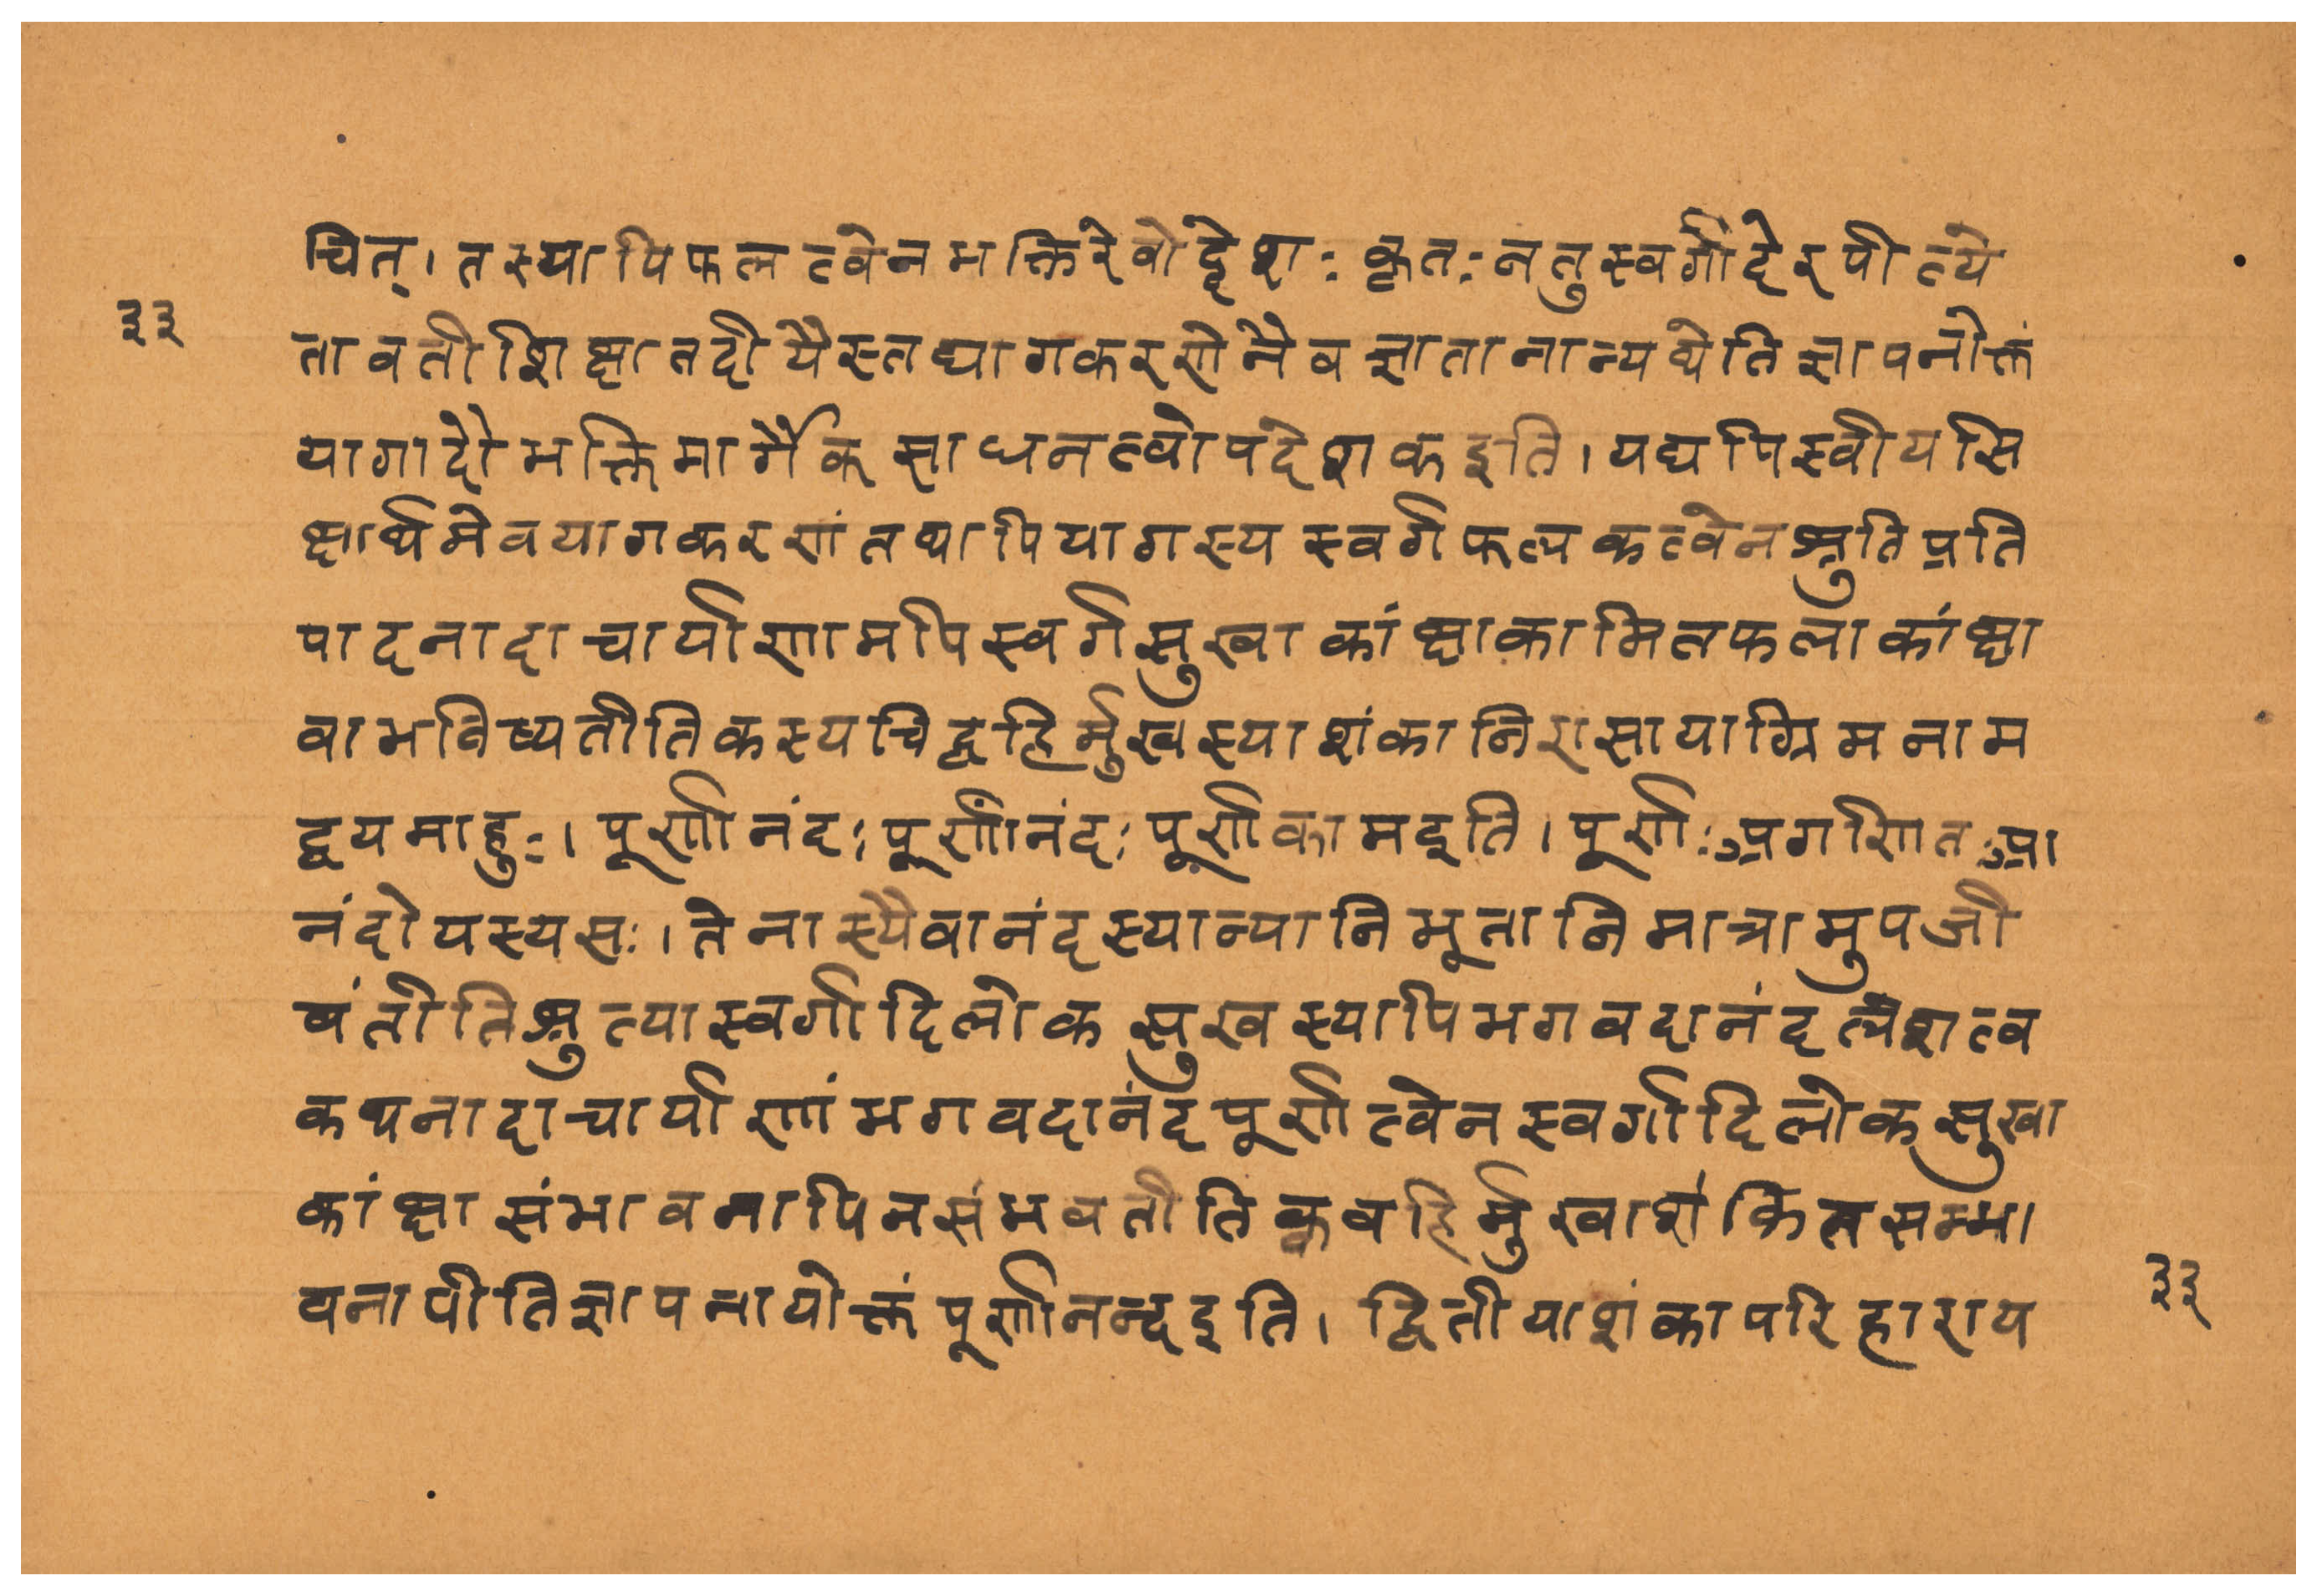 चित्। तस्यापिफलत्वेनभक्तिरेवोद्देशः कृतः नतुस्वर्गादेरपीत्ये
३३
तावतीशिक्षातदीयैस्तद्यागकरणेनैवज्ञातानान्यथेतिज्ञापनोक्तं
यागादौभक्तिमार्गैकसाधनत्वोपदेशकइति। यद्यपिस्वीयसि
क्षार्थमेवयागकरणंतथापियागस्यस्वर्गफलकत्वेनश्रुतिप्रति
पादनादाचार्याणामपिस्वर्गसुखाकांक्षाकामितफलाकांक्षा
वाभविष्यतीतिकस्यचिद्बहिर्मुखस्याशंकानिरासायाग्रिमनाम
द्वयमाहुः। पूर्णानंदः पूर्णानंदः पूर्णकामइति। पूर्णः
नंदोयस्यसः। तेनास्यैवानंदस्यान्यानिभूतानिमात्रामुपजी
वंतीतिश्रुत्यास्वर्गादिलोकसुखस्यापिभगवदानंदलेशत्व
कथनादाचार्याणांभगवदानंदपूर्णत्वेनस्वर्गादिलोकसुखा
कांक्षासंभावनापिनसंभवतीतिक्वबहिर्मुखाशंकितसम्भा
वनापीतिज्ञापनायोक्तंपूर्णानन्दइति। द्वितीयाशंकापरिहाराय
३३